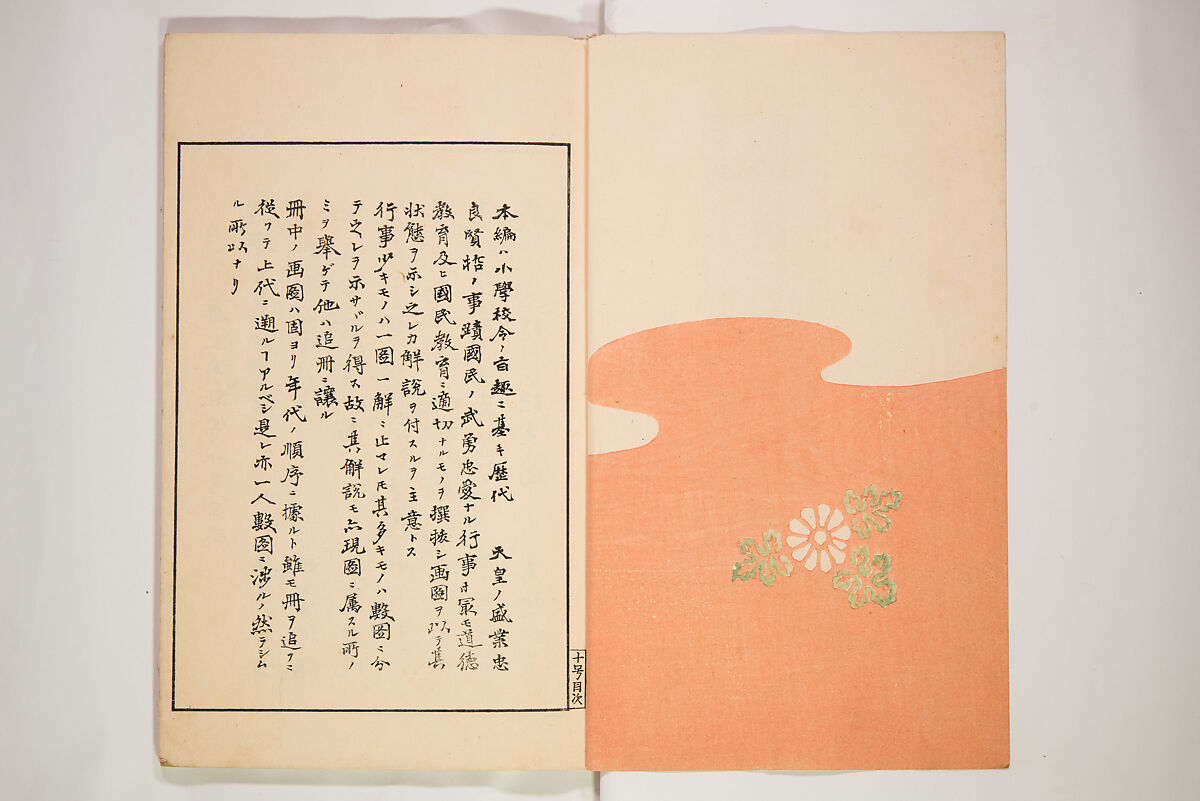 本編ハ小學校令ノ旨趣ニ基キ歴代　天皇ノ盛業忠
良賢哲ノ事蹟國民ノ武勇忠愛ナル行事ヰ最モ道徳
教育及ヒ國民教育ニ適切ナルモノヲ撰抜シ画圖ヲ以テ其
状態ヲ示シ之レカ解説ヲ付スルヲ主意トス
行事少キモノハ一圖一解ニ止マレ𪜈其多キモノハ數圖ニ分
テ之レヲ示サヾルヲ得ス故ニ其解説モ亦現圖ニ属スル所ノ
ミヲ舉ゲテ他ハ追冊ニ讓ル
冊中ノ画圖ハ固ヨリ年代ノ順序ニ據ルト雖モ冊ヲ追フニ
從フテ上代ニ遡ルヿアルベシ是レ亦一人數圖ニ渉ルノ然ラシム
ル所以ナリ
十号目次